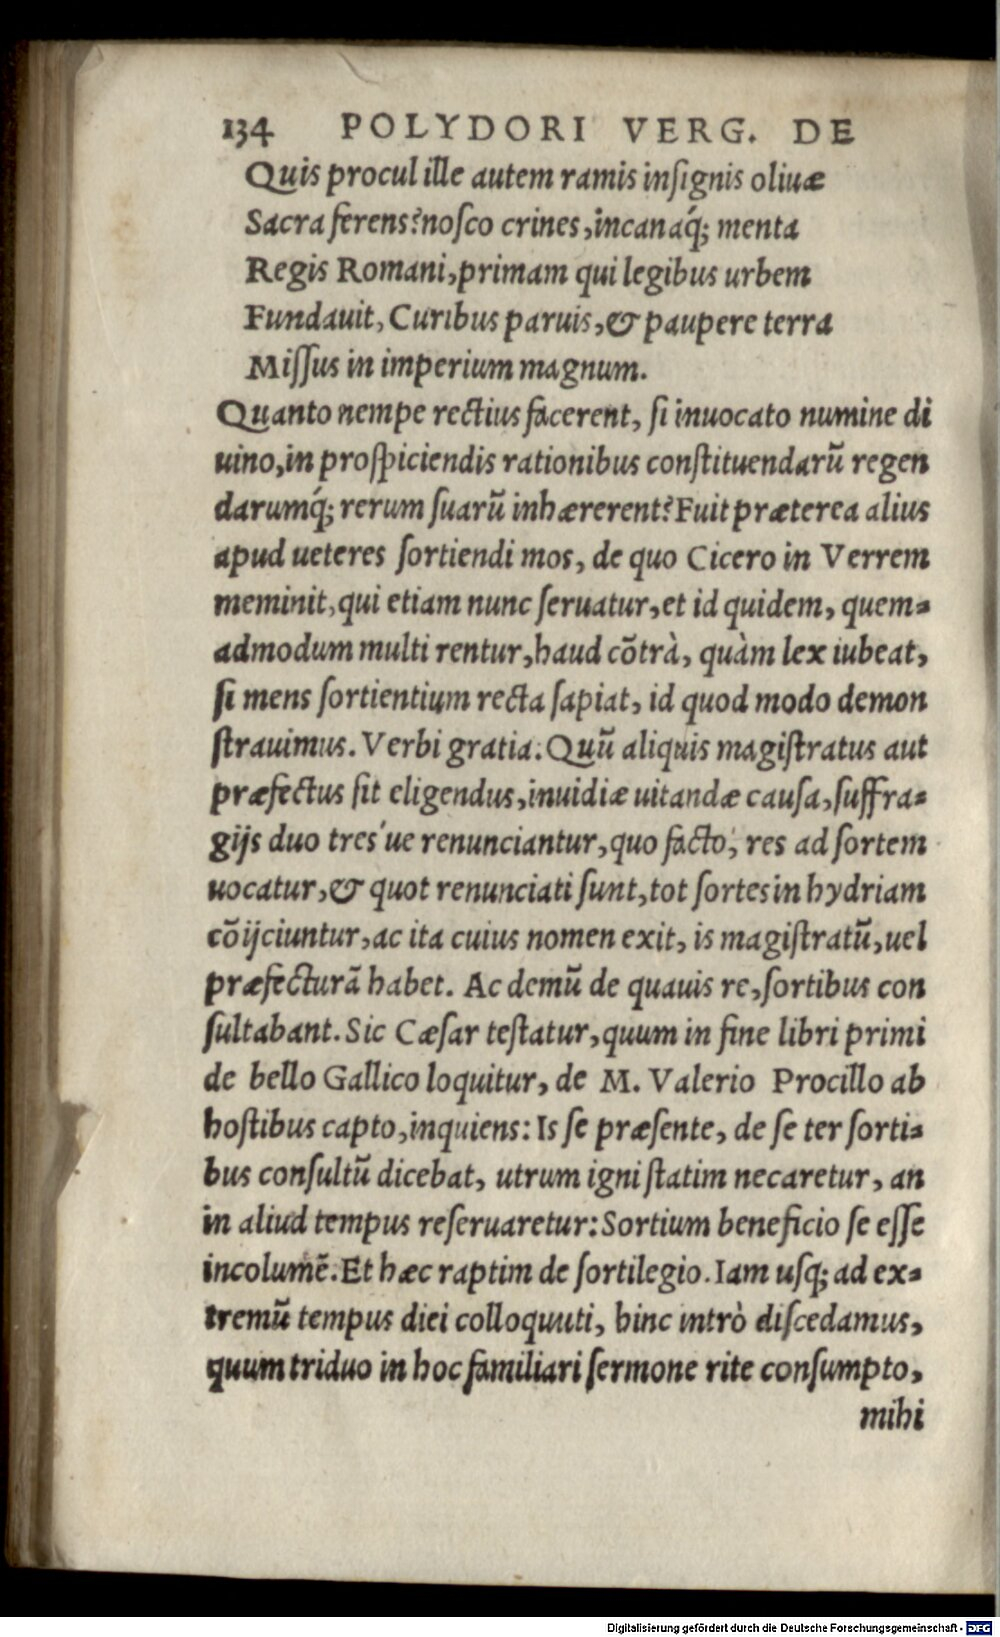 134 POLYDORI VERG. DE
Quis procul ille autem ramis inſignis oliuæ
Sacra ferens? noſco crines, incanaq́; menta
Regis Romani, primam qui legibus urbem
Fundauit, Curibus paruis, & paupere terra
Miſſus in imperium magnum.
Quanto nempe rectius facerent, ſi inuocato numine di
uino, in proſpiciendis rationibus conſtituendarũ regen
darumq́; rerum ſuarũ inhærerent? Fuit præterea alius
apud ueteres ſortiendi mos, de quo Cicero in Verrem
meminit, qui etiam nunc ſeruatur, et id quidem, quem=
admodum multi rentur, haud cõtrà, quàm lex iubeat,
ſi mens ſortientium recta ſapiat, id quod modo demon
ſtrauimus. Verbi gratia. Quũ aliquis magiſtratus aut
præfectus ſit eligendus, inuidiæ uitandæ cauſa, ſuffra=
gijs duo tres'ue renunciantur, quo facto, res ad ſortem
uocatur, & quot renunciati ſunt, tot ſortes in hydriam
cõijciuntur, ac ita cuius nomen exit, is magiſtratũ, uel
præfecturã habet. Ac demũ de quauis re, ſortibus con
ſultabant. Sic Cæſar teſtatur, quum in fine libri primi
de bello Gallico loquitur, de M. Valerio Procillo ab
hoſtibus capto, inquiens: Is ſe præſente, de ſe ter ſorti=
bus conſultũ dicebat, utrum igni ſtatim necaretur, an
in aliud tempus reſeruaretur: Sortium beneficio ſe eſſe
incolumẽ. Et hæc raptim de ſortilegio. Iam uſq; ad ex=
tremũ tempus diei colloquuti, hinc intrò diſcedamus,
quum triduo in hoc familiari ſermone rite conſumpto,
mihi
Digitalisierung gefördert durch die Deutsche Forschungsgemeinschaft - DFG